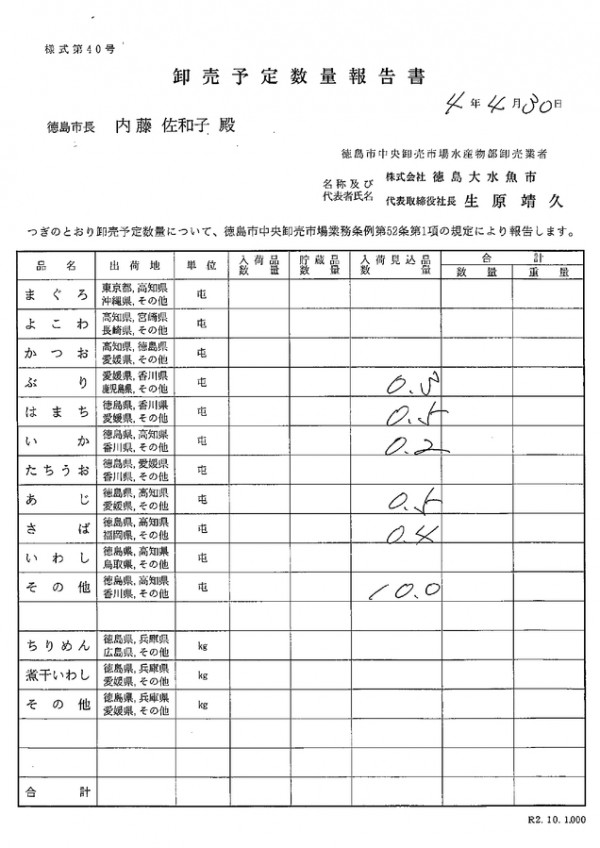 様式第40号
卸売予定数量報告書
4年4月30日
徳島市長 内藤 佐和子 殿
徳島市中央卸売市場水産物部卸売業者
名称及び 株式会社 徳島大水魚市
代表者氏名 代表取締役社長 生原靖久
つぎのとおり卸売予定数量について、徳島市中央卸売市場業務条例第52条第1項の規定により報告します。
品名 出荷地 単位 入荷品数量 貯蔵品数量 入荷見込品数量 合計 数量 重量
まぐろ 東京都, 高知県 屯
沖縄県, その他
よこわ 高知県, 宮崎県 屯
長崎県, その他
かつお 高知県, 徳島県 屯
愛媛県, その他
ぶり 愛媛県, 香川県 屯
鹿児島県, その他
はまち 徳島県, 香川県 屯 0.5
愛媛県, その他
いか 徳島県, 高知県 屯 0.2
香川県, その他
たちうお 徳島県, 愛媛県 屯
香川県, その他
あじ 徳島県, 高知県 屯 0.5
愛媛県, その他
さば 徳島県, 高知県 屯 0.4
福岡県, その他
いわし 徳島県, 高知県 屯
鳥取県, その他
その他 徳島県, 高知県 屯 10.0
香川県, その他
ちりめん 徳島県, 兵庫県 kg
広島県, その他
煮干いわし 徳島県, 兵庫県 kg
愛媛県, その他
その他 徳島県, 兵庫県 kg
愛媛県, その他
合計
R2. 10. 1,000